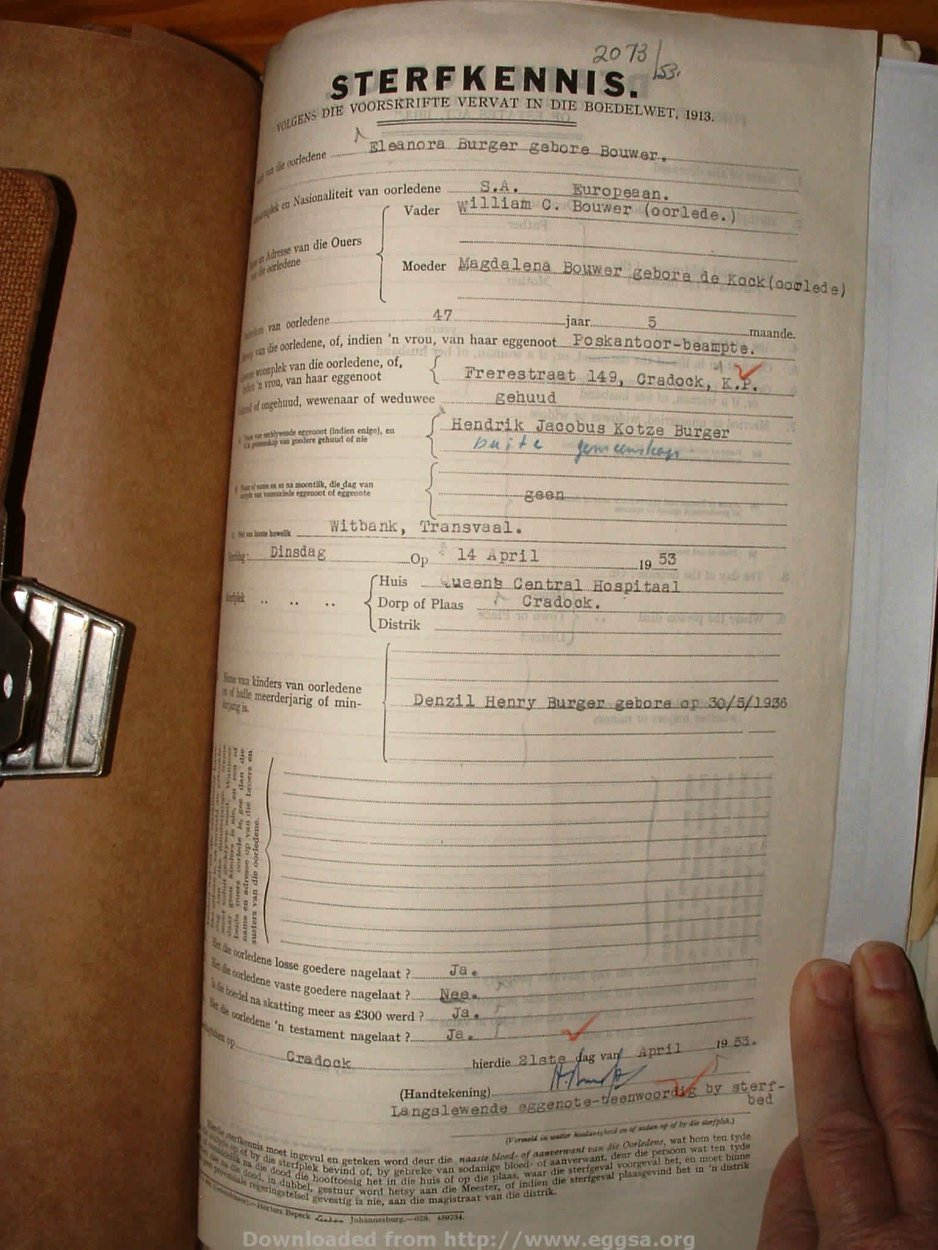 2073/53.
STERFKENNIS.
VOLGENS DIE VOORSKRIFTE VERVAT IN DIE BOEDELWET, 1913.
van die oorledene Eleanora Burger gebore Bouwer.
en Nasionaliteit van oorledene S.A. Europeaan.
en Adresse van die Ouers
die oorledene
Vader William C. Bouwer (oorlede.)
Moeder Magdalena Bouwer gebore de Kock(oorlede)
van oorledene 47 jaar 5 maande.
van die oorledene, of, indien 'n vrou, van haar eggenoot Poskantoor-beampte.
woonplek van die oorledene, of,
indien 'n vrou, van haar eggenoot
Frerestraat 149, Cradock, K.P.
of ongehuud, wewenaar of weduwee gehuud
eggenoot (indien enige), en
van goedere gehuud of nie
Hendrik Jacobus Kotze Burger
buite gemeenskap
en so na moontlik, die dag van
eggenoot of eggenote
geen
Witbank, Transvaal.
Dinsdag Op 14 April 1953
Huis Queens Central Hospitaal
Dorp of Plaas Cradock.
Distrik
van kinders van oorledene
of hulle meerderjarig of min-
derjarig is.
Denzil Henry Burger gebore op 30/5/1936
name en adresse op van die broers en
susters van die oorledene.
Het die oorledene losse goedere nagelaat ? Ja.
Het die oorledene vaste goedere nagelaat ? Nee.
Is die boedel na skatting meer as £300 werd ? Ja.
Het die oorledene 'n testament nagelaat ? Ja.
op Cradock hierdie 21ste dag van April 1953.
(Handtekening)
Langslewende eggenote-teenwoordig by sterf-
bed
(Vermeld in watter hoedanigheid en of aldan op of by die sterfplek.)
sterfkennis moet ingevul en geteken word deur die naaste bloed- of aanverwant van die Oorledene, wat hom ten tyde
of by die sterfplek bevind of, by gebreke van sodanige bloed- of aanverwant, deur die persoon wat ten tyde
na die dood die hooftoesig het in die huis of op die plaas, waar die sterfgeval voorgeval het, en moet binne
na die dood, in dubbel, gestuur word hetsy aan die Meester, of indien die sterfgeval plaasgevind het in 'n distrik
regeringstelsel gevestig is nie, aan die magistraat van die distrik.
Hortors Beperk Johannesburg.—028. 480734.
Downloaded from http://www.eggsa.org